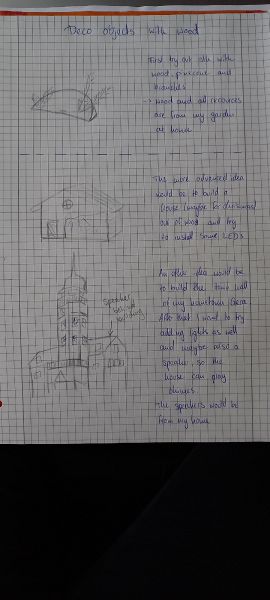 Deco objects with wood
First try out idea with
wood, pinecone and
branches
→ wood and all resources
are from my garden
at home
The more advanced idea
would be to build a
house (maybe for christmas)
out of wood and try
to install some LED's
An other idea would be
to build the town hall
of my hometown
Also that I want to try
adding lights as well
and maybe also a
speaker, so the
house can play
The speakers would be
from my home
Speaker
building